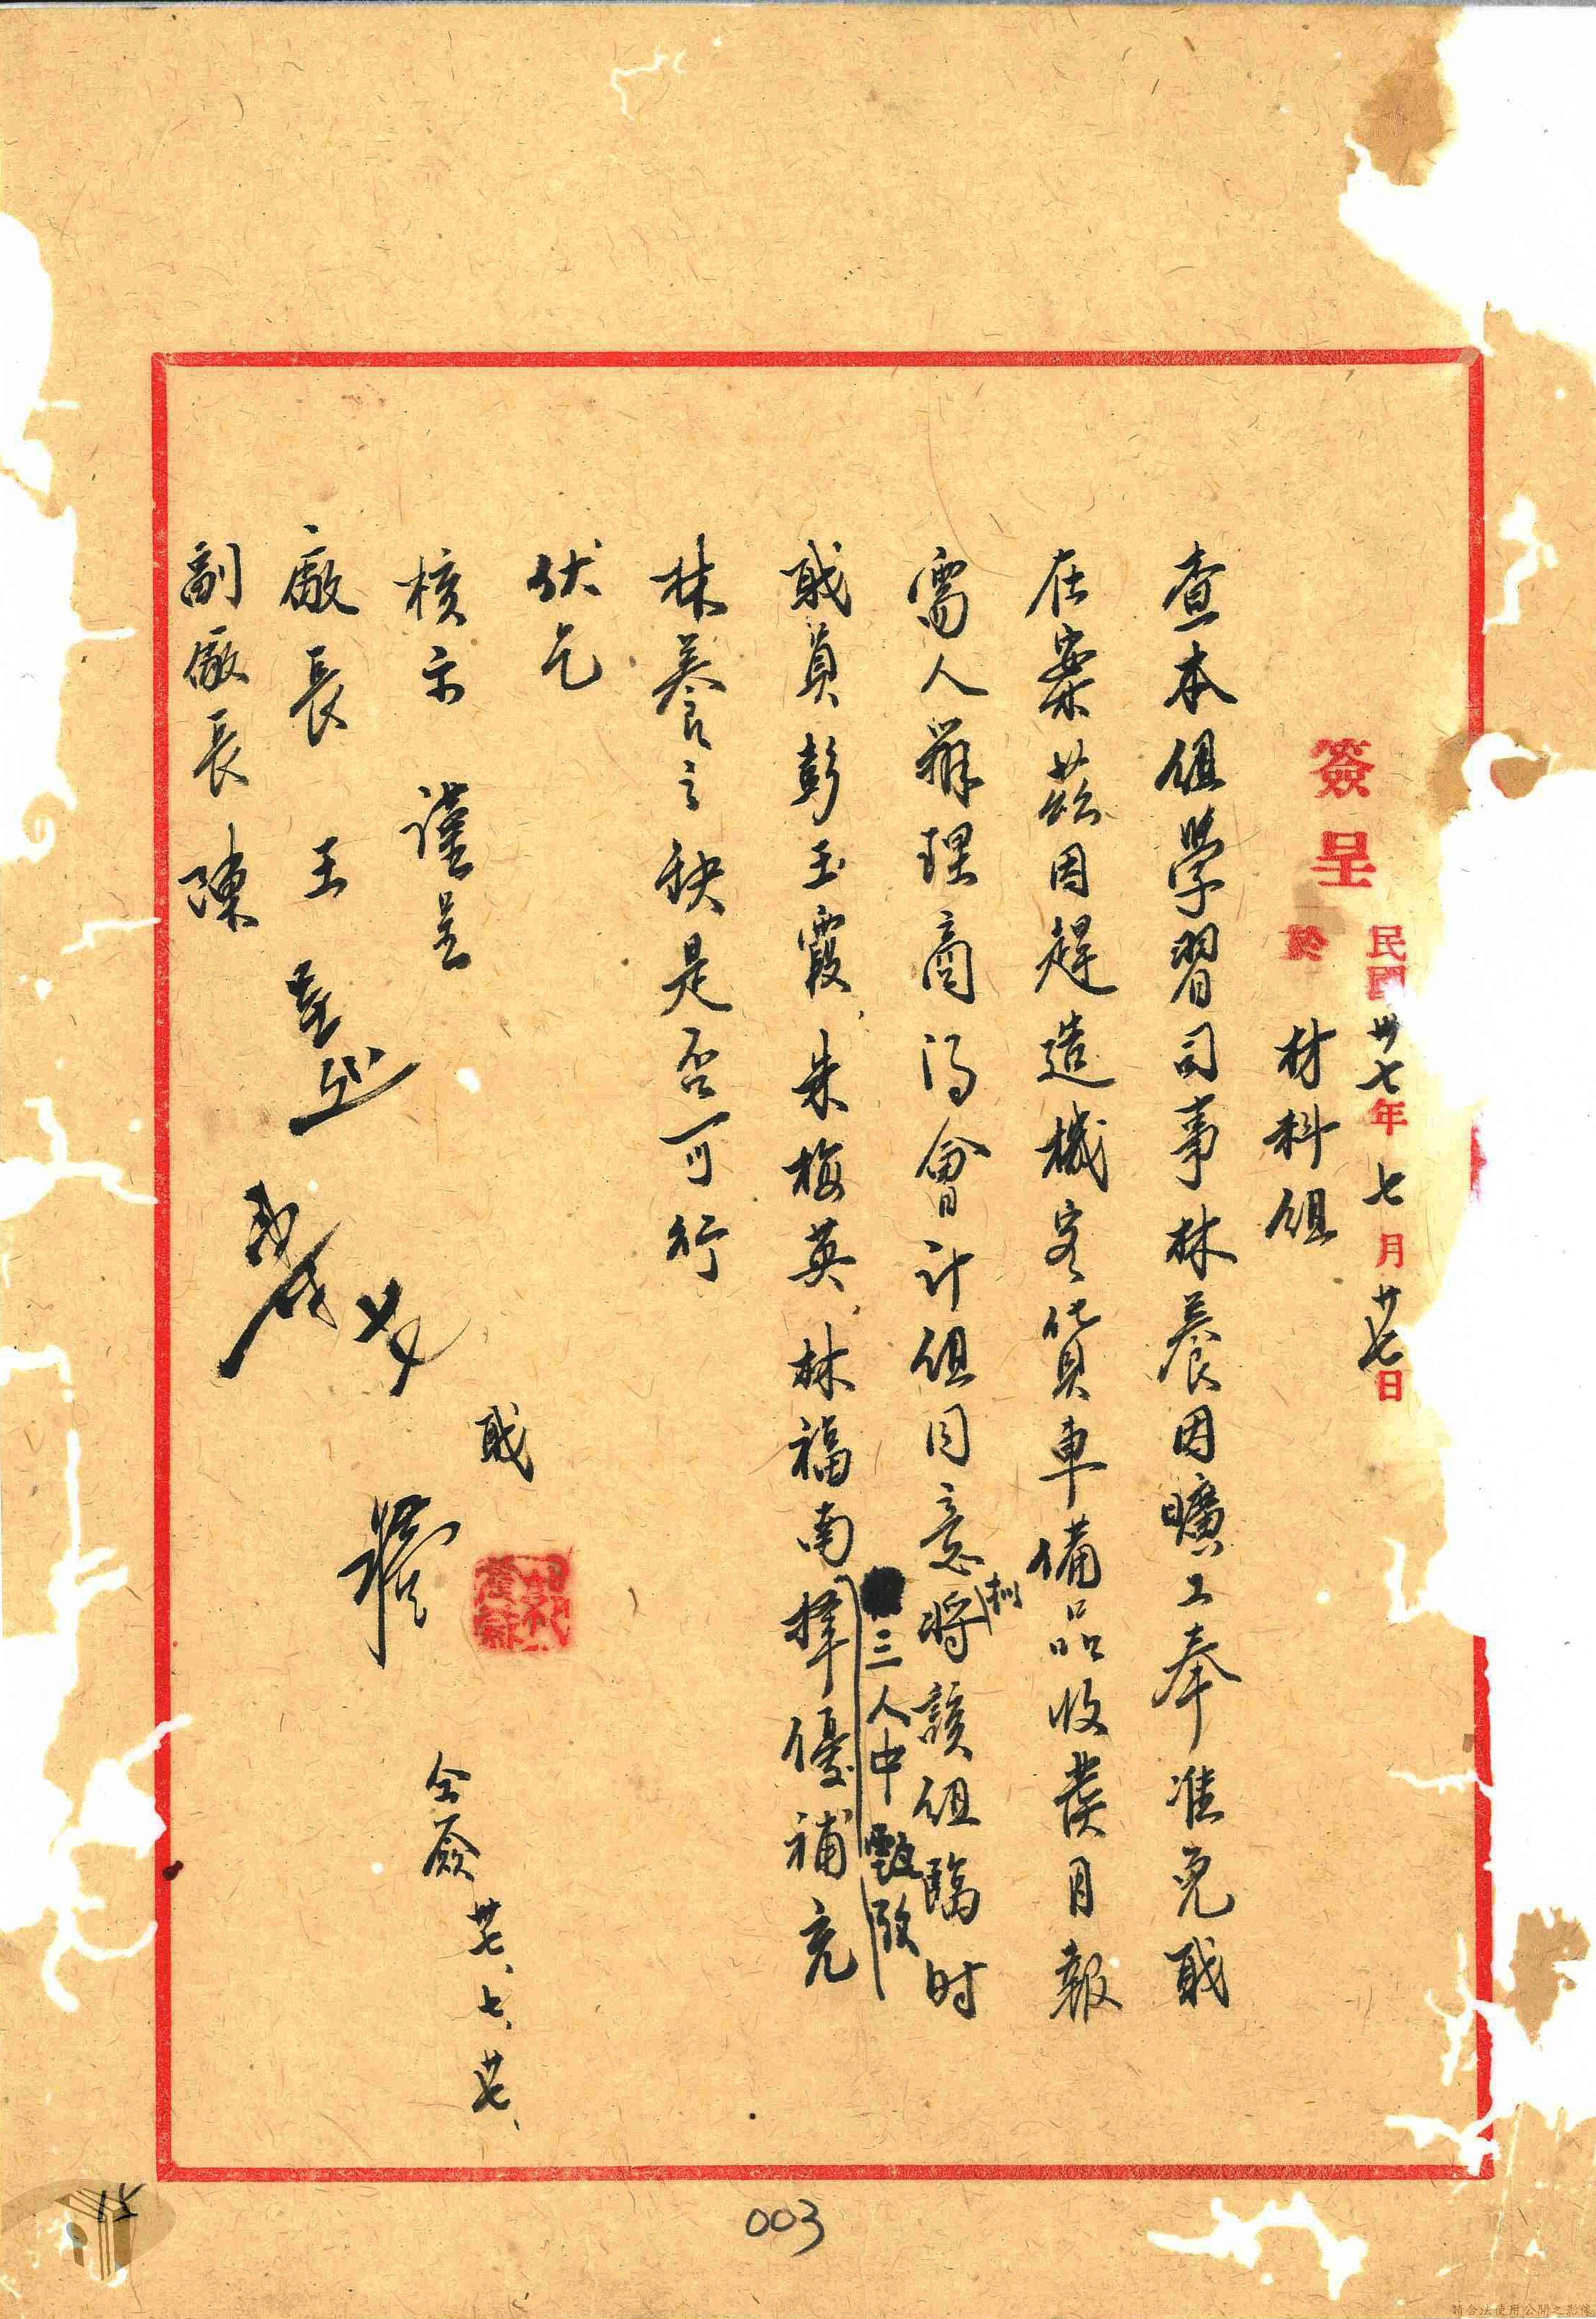 簽呈
民國卅七年七月廿七日
於 材料組
查本組學習司事林養因曠工奉准免职
在案茲因趕造機客貨車備品收發月報
需人辦理商得會計組同意擬將該組臨时
职員彭玉霞、朱梅英、林福南三人中甄拔擇優補充
林養之缺是否可行
伏乞
核示 謹呈
廠長 王
副廠長 陳
职
仝簽 卅七、七、廿七、
003
15
請合法使用公開之影像